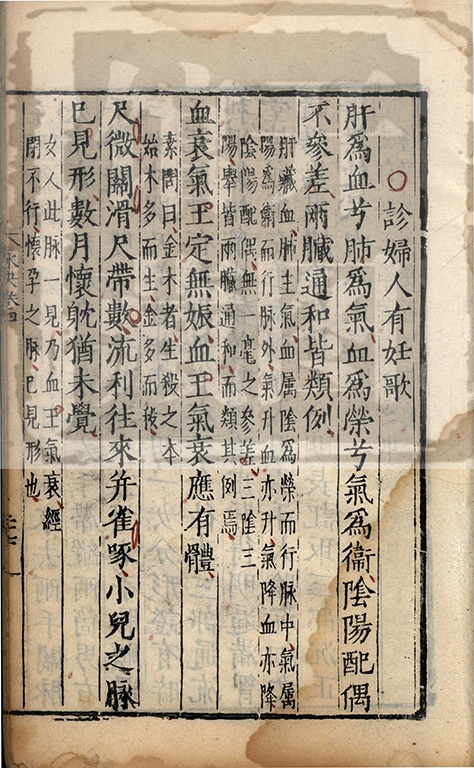 〇診婦人有妊歌
肝爲血兮肺爲氣血爲榮兮氣爲衞陰陽配偶
不參差兩臟通和皆類例
肝藏血肺主氣血属陰爲榮而行脉中氣属
陽爲衞而行脉外氣升血亦升氣降血亦降
陰陽配偶無一毫之參差三陰三
陽舉皆兩臟通和而類其例焉
血衰氣王定無娠血王氣衰應有體
素問曰金木者生殺之本
始木多而生金多而殺
尺微關滑尺帶數流利往來并雀啄小兒之脉
已見形數月懷躭猶未覺
女人此脉一見乃血王氣衰經
閉不行懷孕之脉已見形也